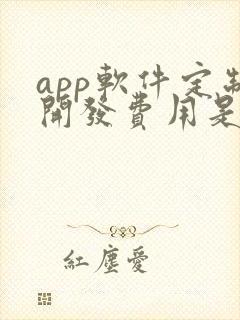 app軟件定制
開發費用是
紅塵愛